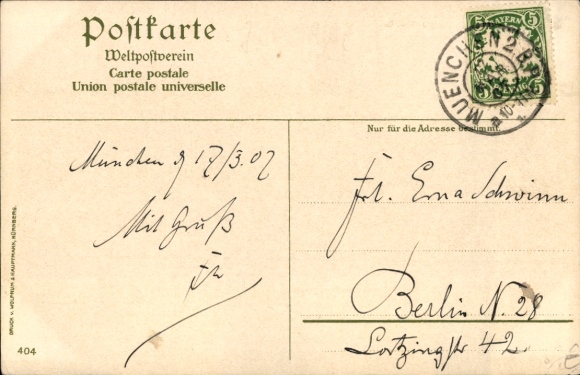 Postkarte
Weltpostverein
Carte postale
Union postale universelle
BAYERN
5 5
MUENCHEN 2 B.P.
Nur für die Adresse bestimmt.
München d 17/3.07
Mit Gruß
Frl. Erna Schwinn
Berlin N. 28
Lortzingstr 42
DRUCK v. WOLFRUM & HAUPTMANN, NÜRNBERG.
404